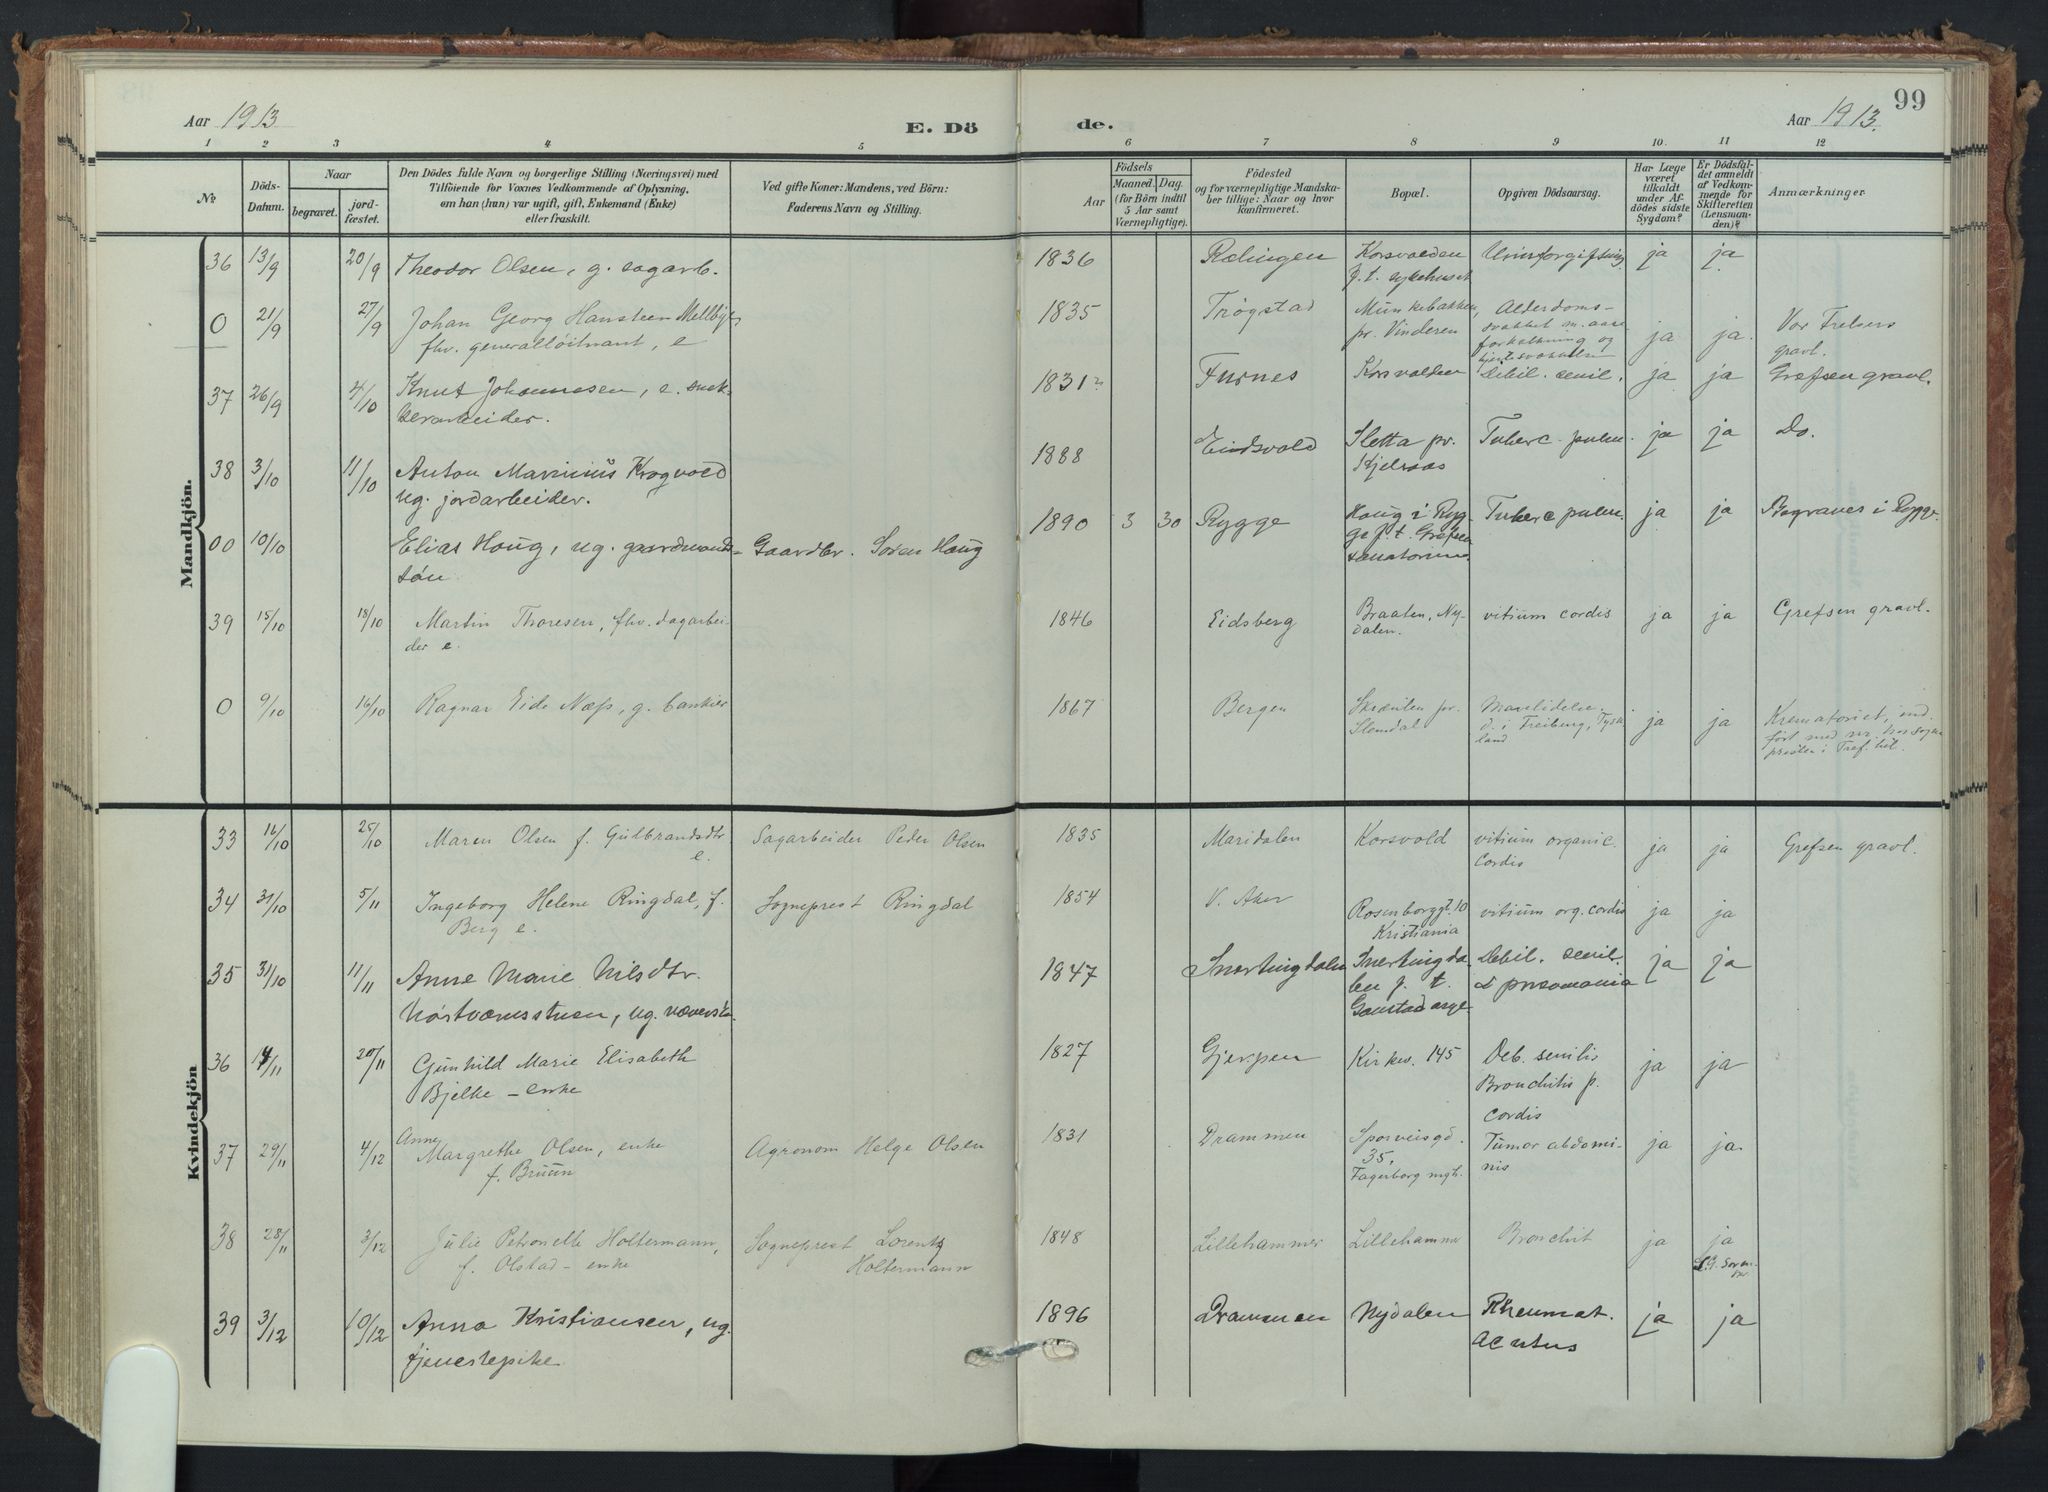 99
Aar 1913
E. Dö
de.
Aar 1913.
1 2 3 4 5 6 7 8 9 10. 11 12
№
Döds-
Datum.
Naar
begravet.
jord-
fæstet.
Den Dödes fulde Navn og borgerlige Stilling (Næringsvei) med
Tilföiende for Voxnes Vedkommende af Oplysning.
om han (hun) var ugift, gift, Enkemand (Enke)
eller fraskilt.
Ved gifte Koner: Mandens, ved Börn:
Faderens Navn og Stilling.
Aar
Födsels
Maaned. Dag
(for Börn indtil
5 Aar samt
Værnepligtige).
Födested
og for værnepligtige Mandska-
ber tillige: Naar og hvor
konfirmeret.
Bopæl.
Opgiven Dödsaarsag.
Har Læge
været
tilkaldt
under Af-
dödes sidste
Sygdom?
Er Dödsfal-
det anmeldt
af Vedkom-
mende for
Skifteretten
(Lensman-
den)?
Anmærkninger
Mandkjön.
36 13/9 20/9 Theodor Olsen, g. sagarb. 1836 Rælingen Korsvolden Urinforgiftning ja ja
f. t. sykehuset
0 21/9 27/9 Johan Georg Hansteen Mellbye 1835 Trøgstad Munkebakken, Alderdoms- ja ja. Vor Frelsers
fhv. generalløitnant, e pr. Vinderen svakhet m. aare
forkalkning og gravl.
hjertesvakhet
37 26/9 4/10 Knut Johannesen, e. snek- 1831 Furnes Korsvolden Debil. senil. ja ja Grefsen gravl.
kerarbeider.
38 3/10 11/10 Anton Marinius Krogvold 1888 Eidsvold Sletta pr. Tuberc. pulm. ja ja Do.
ug. jordarbeider. Kjelsaas
00 10/10 Elias Houg, ug. gaardmands- Gaardbr. Søren Houg 1890 3 30 Rygge Houg i Ryg- Tuberc pulm. ja ja Begraves i Rygge.
søn ge f. t. Grefsen
sanatorium.
39 15/10 18/10 Martin Thoresen, fhv. dagarbei- 1846 Eidsberg Braaten, Ny- vitium cordis ja ja Grefsen gravl.
der e. dalen.
0 9/10 16/10 Ragnar Eide Næss, g. bankier 1867 Bergen Skrænten pr. Mavelidelse. ja ja Krematoriet, ind-
Slemdal d. i Freiburg, Tysk ført med nr. hos sogne
land presten i Tref. hit.
Kvindekjön
33 16/10 25/10 Maren Olsen f. Gulbrandsdtr Sagarbeider Peder Olsen 1835 Maridalen Korsvold vitium organic. ja ja Grefsen gravl.
e. cordis
34 31/10 5/11 Ingeborg Helene Ringdal, f. Sogneprest Ringdal 1854 V. Aker Rosenborggt. 10 vitium org. cordis ja ja
Berg e. Kristiania
35 31/10 11/11 Anne Marie Nilsdtr. 1847 Snertingdalen Snertingda- Debil. senil. ja ja
len f. t. d
Nørtvæmsstuen, ug. væverske Gaustad asyl
36 14/11 20/11 Gunhild Marie Elisabeth 1827 Gjerpen Kirkev. 145 Deb. senilis ja ja
Bjelke – enke Bronchitis p.
Cordis
37 29/11 4/12 Anne
Margrethe Olsen, enke Agronom Helge Olsen 1831 Drammen Sporveisgd. Tumor abdomi- ja ja.
f. Bruun 35, nis
Fagerborg mgh.
38 28/11 3/12 Julie Petronelle Holtermann, Sogneprest Lorentz 1848 Lillehammer Lillehammer Bronchit ja ja
f. Olstad – enke Holtermann
39 3/12 10/12 Anna Kristiansen, ug. 1896 Drammen Nydalen Rheumat. ja ja
tjenestepike acutus